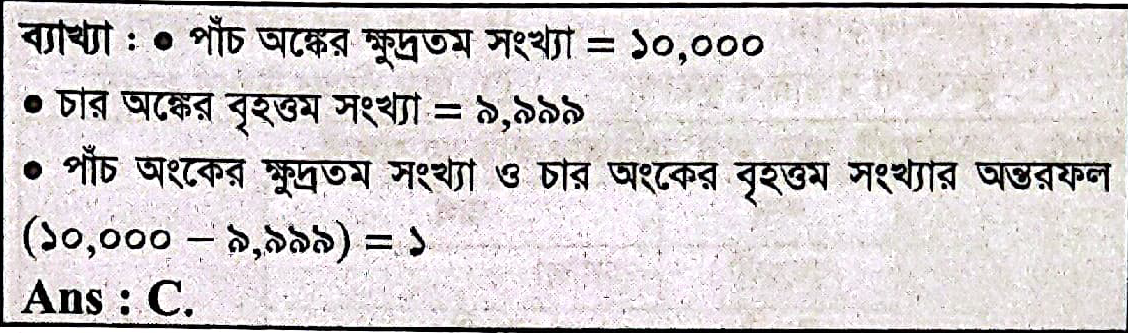 ব্যাখ্যা : ● পাঁচ অঙ্কের ক্ষুদ্রতম সংখ্যা = ১০,০০০
● চার অঙ্কের বৃহত্তম সংখ্যা = ৯,৯৯৯
● পাঁচ অংকের ক্ষুদ্রতম সংখ্যা ও চার অংকের বৃহত্তম সংখ্যার অন্তরফল
(১০,০০০ – ৯,৯৯৯) = ১
Ans : C.